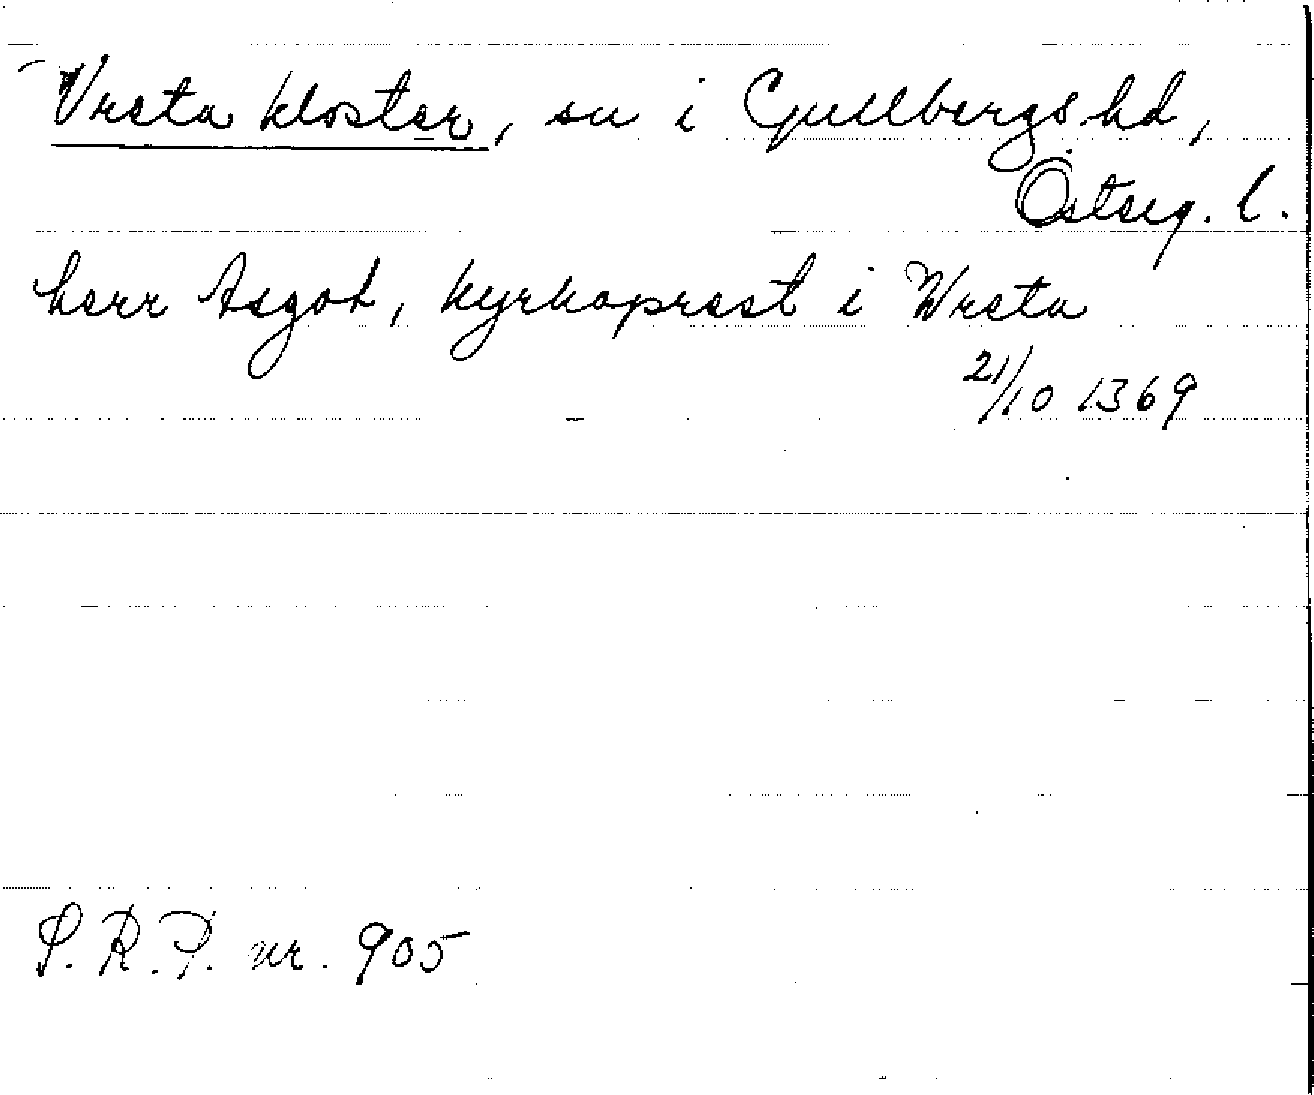 Vreta kloster, sn i Gullbergs hd,
Östserg. l.
herr Asgot, kyrkoprest i Wreta
21/10 1369
S. R. P. nr. 905